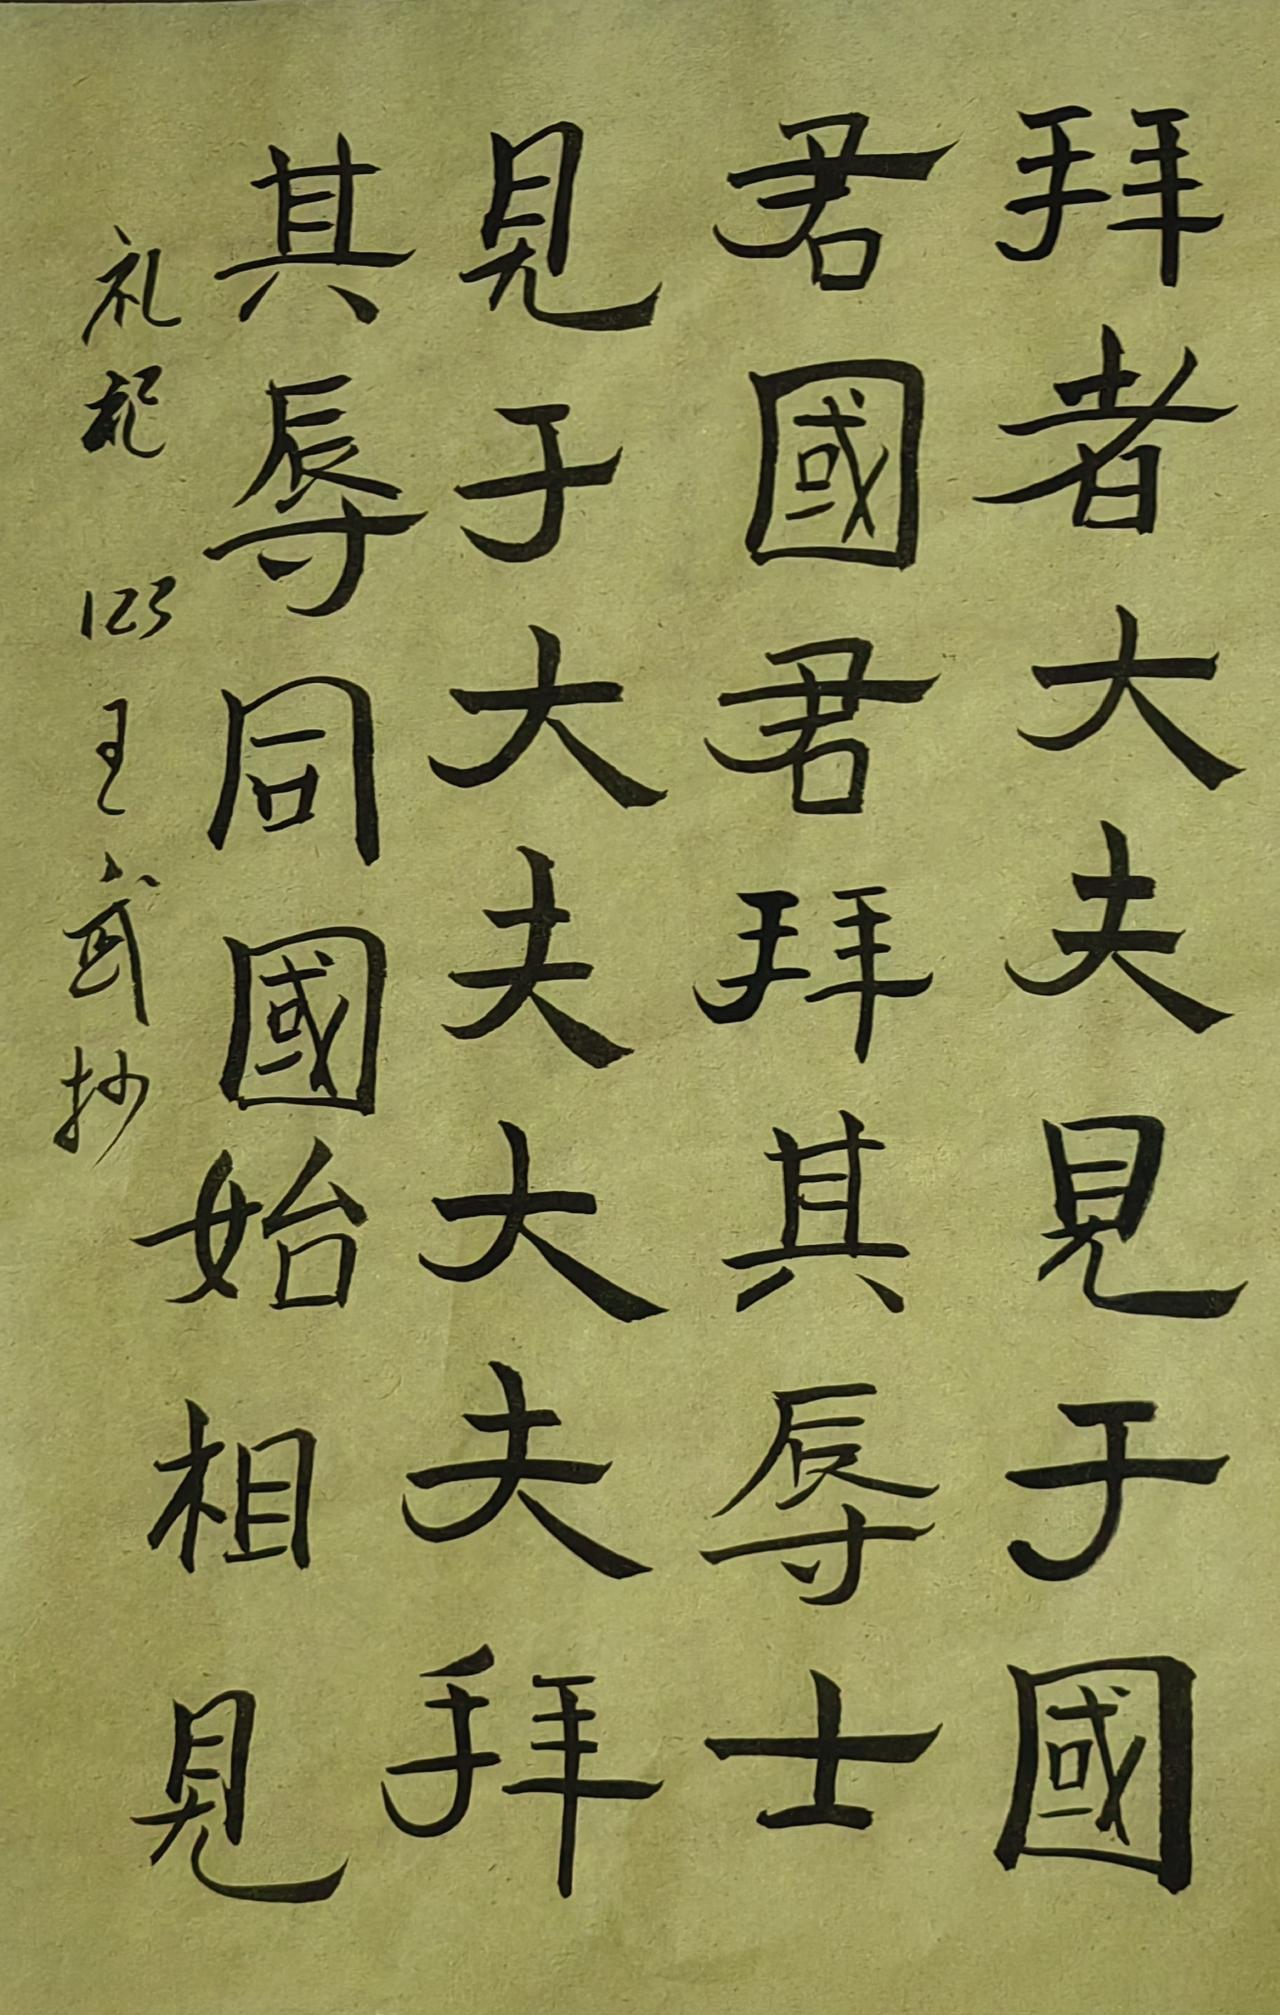 拜者大夫見于國
君國君拜其辱士
見于大夫大夫拜
其辱同國始相見
礼記 123 王武抄